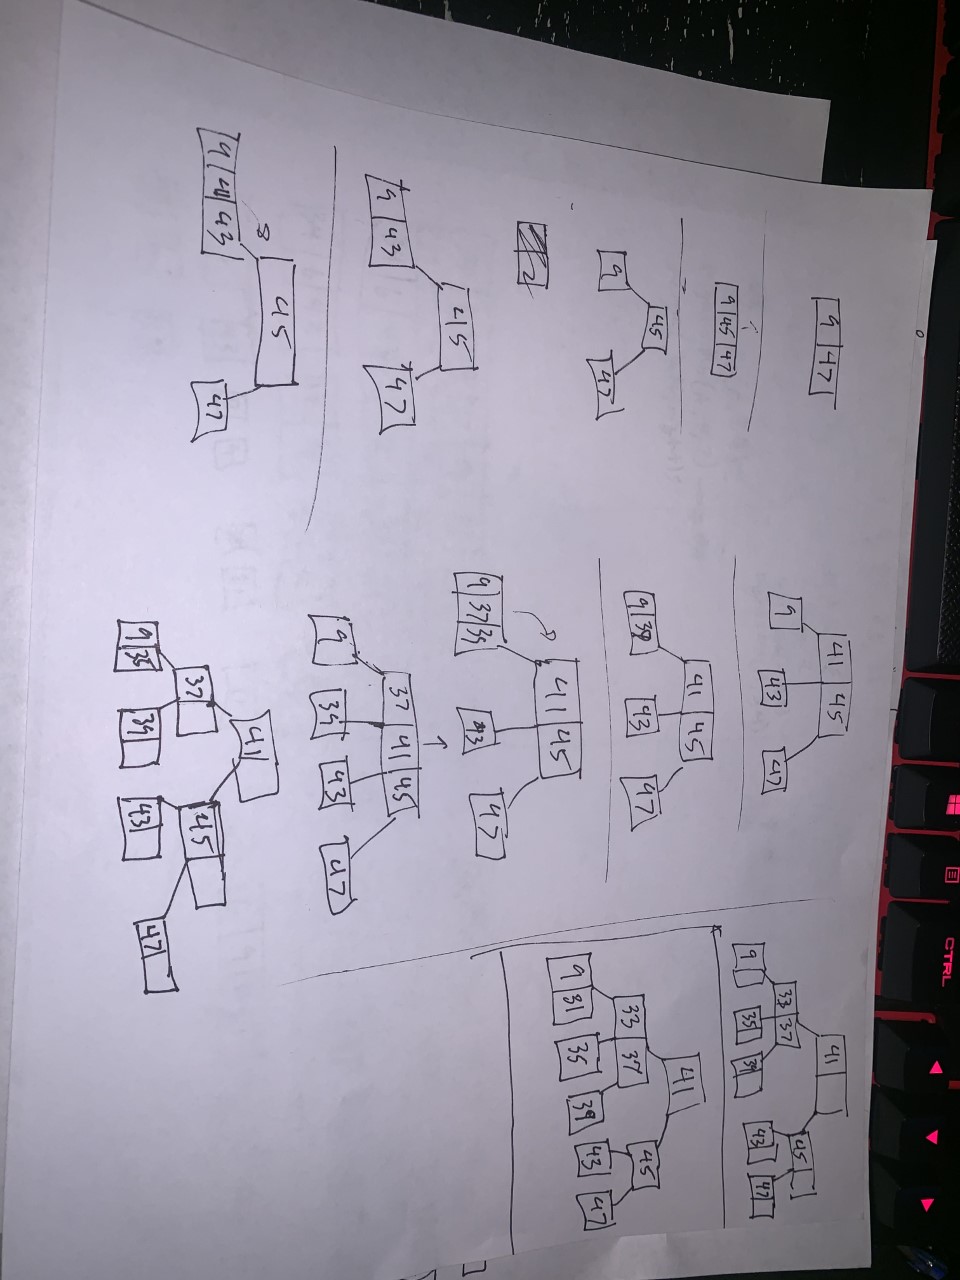 CTRL
9 47
9 45 47
45
9 47
2
45
9 43 47
45
9 41 43 47
41 45
9 43 47
41 45
9 39 43 47
41 45
9 37 39 43 47
37 41 45
9 39 43 47
41
37 45
9 35 39 43 47
41
33 37 45
9 35 39 43 47
41
33 37 45
9 31 35 39 43 47